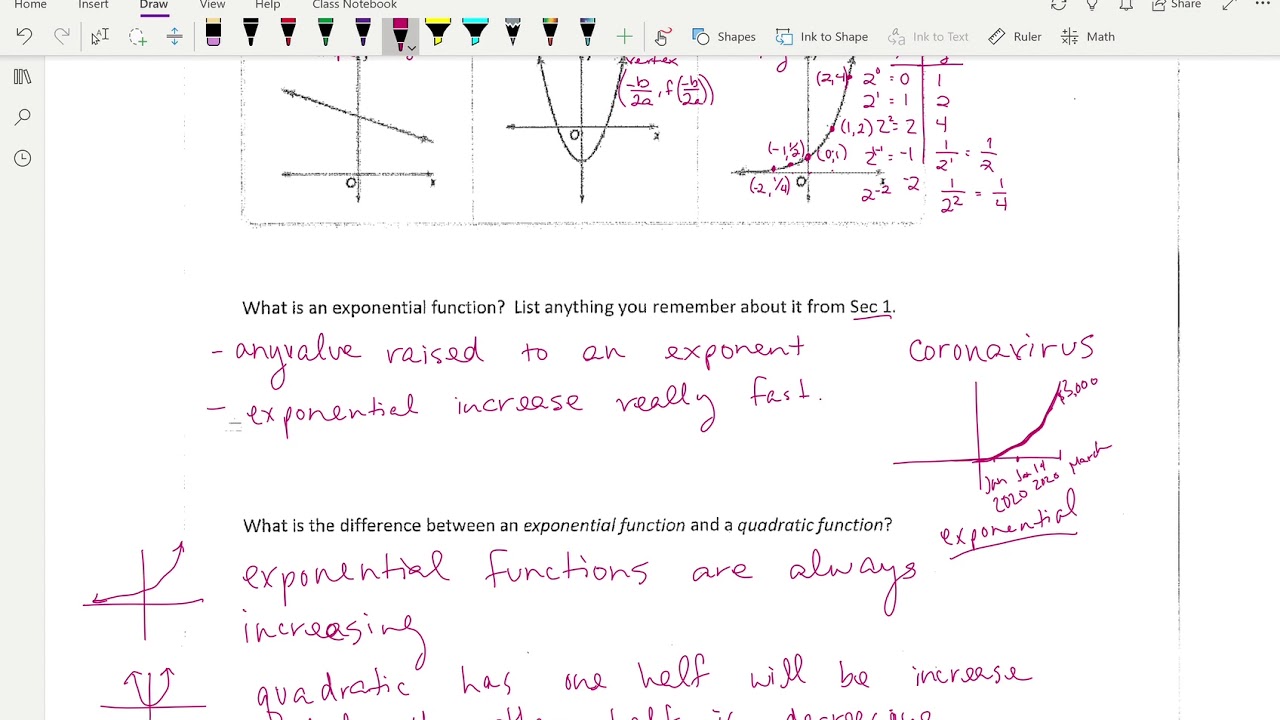 Home Insert Draw View Help Class Notebook Share
Shapes Ink to Shape Ink to Text Ruler Math
vertex
(-b/2a, f(-b/2a))
(2,4) 2^0 = 0 1
2^1 = 1 2
(1,2) 2^2 = 2 4
(-1, 1/2) (0,1) 2^-1 = -1 1/2^1 = 1/2
(-2, 1/4) 2^-2 -2 1/2^2 = 1/4
O x O x O x
What is an exponential function? List anything you remember about it from Sec 1.
- anyvalue raised to an exponent
coronavirus
- exponential increase really fast.
Jan 2020
2020 March
exponential
What is the difference between an exponential function and a quadratic function?
exponential functions are always
increasing
quadratic has one half will be increase